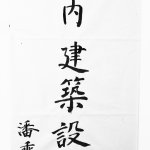 內建築設
潘